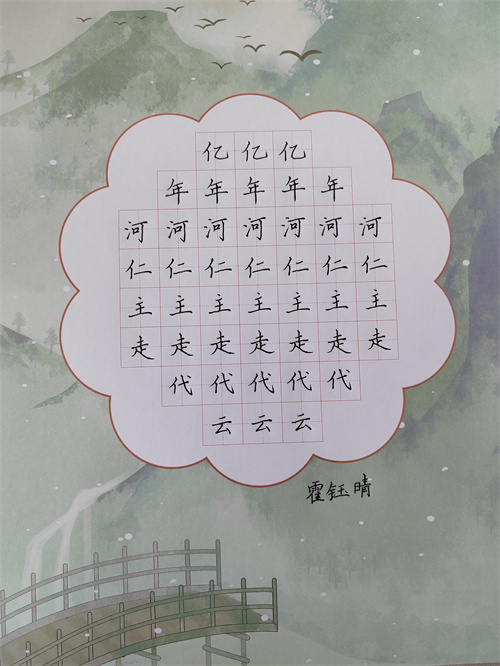 亿亿亿
年年年年年
河河河河河河河
仁仁仁仁仁仁仁
主主主主主主主
走走走走走走走
代代代代代
云云云
霍钰晴